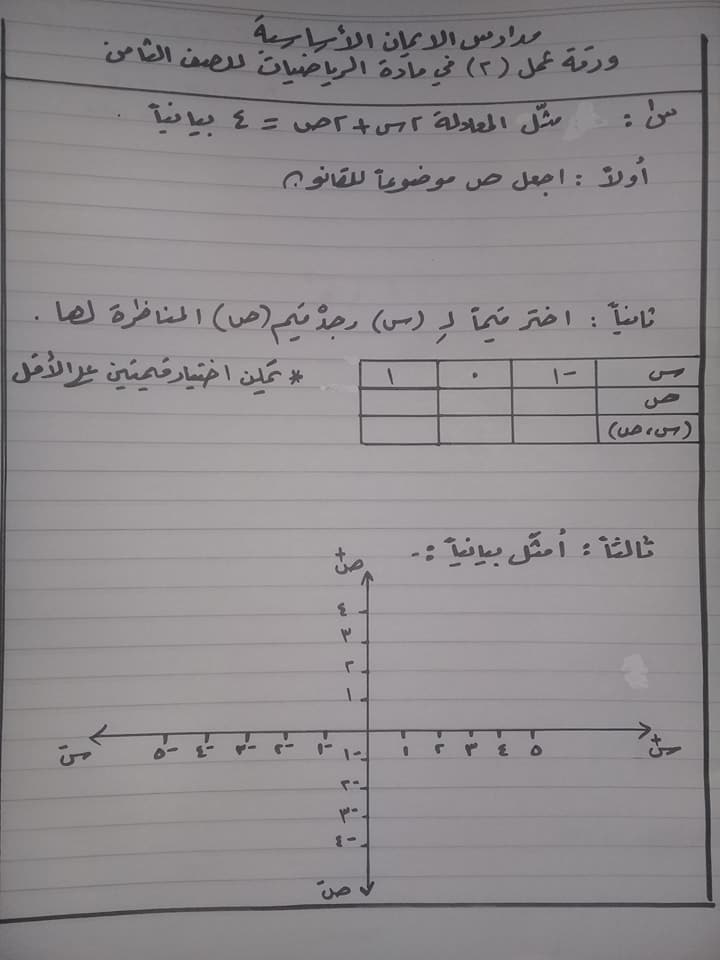 مدارس الايمان الأساسية
ورقة عمل (٢) في مادة الرياضيات للصف الثامن
س١ : مثّل المعادلة ٢س + ٢ص = ٤ بيانياً .
أولاً : اجعل ص موضوعاً للقانون
ثانياً : اختر قيماً لِ (س) وجدْ قيم (ص) المناظرة لها .
س -١ ٠ ١
* يمكن اختيار قيمتين على الأقل
ص
(س ، ص)
ثالثاً : أمثّل بيانياً :-
ص+
٤
٣
٢
١
س- -٥ -٤ -٣ -٢ -١ ١ ٢ ٣ ٤ ٥ س+
-١
-٢
-٣
-٤
ص-